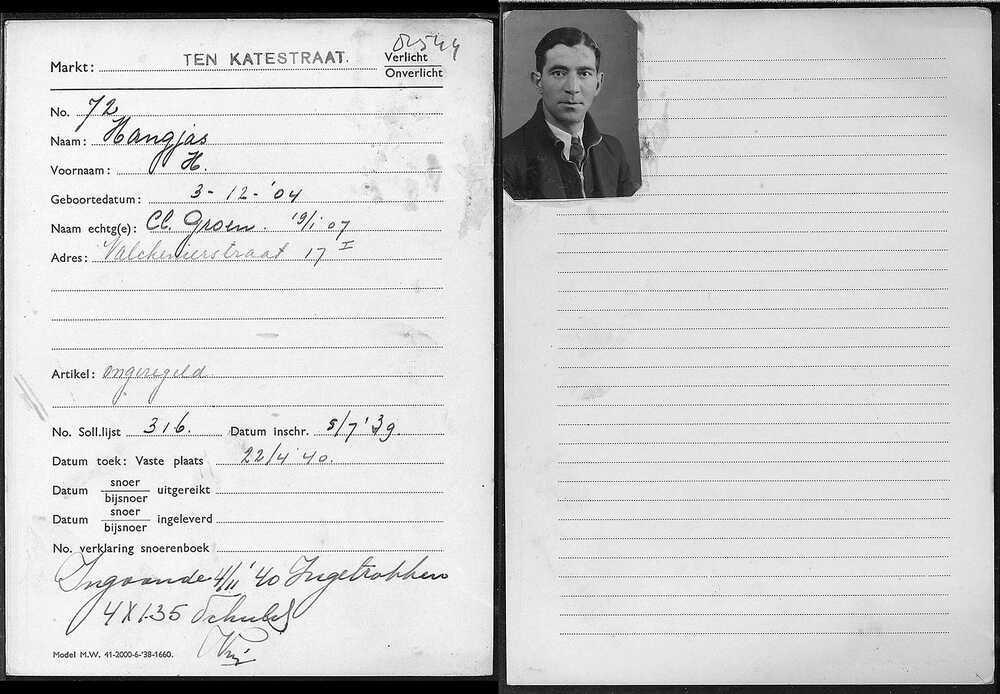 Markt: TEN KATESTRAAT. Verlicht
Onverlicht
No. 72
Naam: Hangjas
Voornaam: H.
Geboortedatum: 3-12-'04
Naam echtg(e): Cl. Groen. 19/1 07
Adres: Valckenierstraat 17 I
Artikel: ongeregeld
No. Soll.lijst 316. Datum inschr. 5/7 '39.
Datum toek: Vaste plaats 22/4 '40.
Datum snoer uitgereikt
bijsnoer
Datum snoer ingeleverd
bijsnoer
No. verklaring snoerenboek
Ingaande 4/11 '40 Ingetrokken
4 X 1.35 Schuld
Model M.W. 41-2000-6-'38-1660.